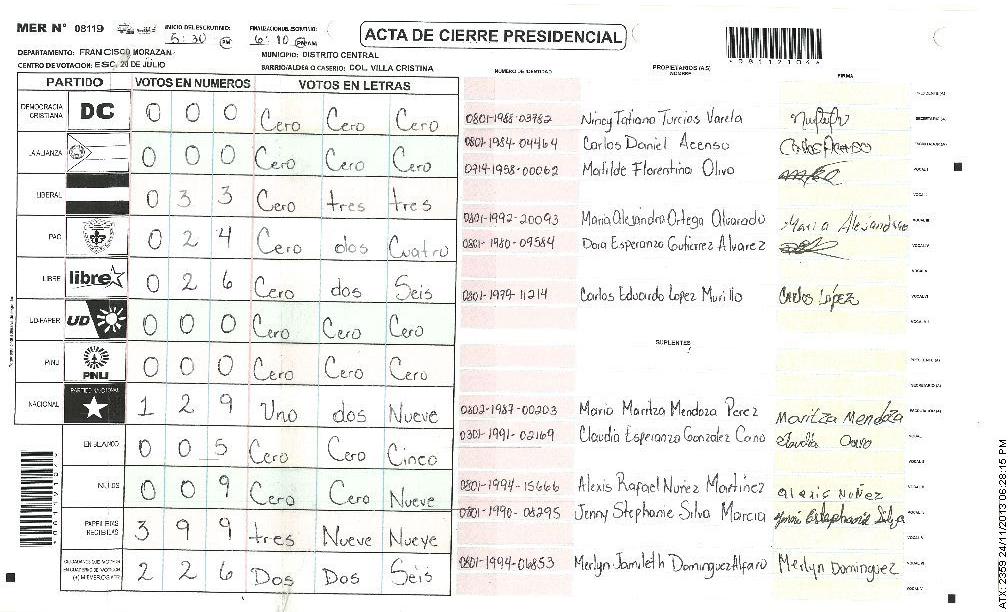 MER N° 08119
INICIO DEL ESCRUTINIO:
5:30 PM
FINALIZACION DEL ESCRUTINIO:
6:10 PM AM
ACTA DE CIERRE PRESIDENCIAL
DEPARTAMENTO: FRANCISCO MORAZAN
MUNICIPIO: DISTRITO CENTRAL
CENTRO DE VOTACION: ESC. 20 DE JULIO
BARRIO/ALDEA O CASERIO: COL. VILLA CRISTINA
PARTIDO VOTOS EN NUMEROS VOTOS EN LETRAS
DEMOCRACIA CRISTIANA DC 0 0 0 Cero Cero Cero
LA ALIANZA 0 0 0 Cero Cero Cero
LIBERAL 0 3 3 Cero tres tres
PAC 0 2 4 Cero dos Cuatro
LIBRE libre 0 2 6 Cero dos Seis
UD-FAPER UD 0 0 0 Cero Cero Cero
PINU PINU 0 0 0 Cero Cero Cero
NACIONAL PARTIDO NACIONAL 1 2 9 Uno dos Nueve
EN BLANCO 0 0 5 Cero Cero Cinco
NULOS 0 0 9 Cero Cero Nueve
PAPELETAS RECIBIDAS 3 9 9 tres Nueve Nueve
2 2 6 Dos Dos Seis
NUMERO DE IDENTIDAD PROPIETARIOS (AS) NOMBRE FIRMA
PRESIDENTE (A)
0801-1988-03782 Nincy Tatiana Turcios Varela SECRETARIO (A)
0801-1984-04464 Carlos Daniel Acenso Carlos Acenso ESCRUTADOR (A)
0714-1958-00062 Matilde Florentina Olivo VOCAL I
VOCAL II
0801-1992-20093 Maria Alejandra Ortega Alvarado Maria Alejandra VOCAL III
0801-1980-09584 Dora Esperanza Gutierrez Alvarez VOCAL IV
VOCAL V
0801-1979-11214 Carlos Eduardo Lopez Murillo Carlos López VOCAL VI
VOCAL VII
SUPLENTES
PRESIDENTE (A)
SECRETARIO (A)
0802-1987-00203 Maria Maritza Mendoza Perez Maritza Mendoza ESCRUTADOR (A)
0301-1991-02169 Claudia Esperanza Gonzalez Cano Claudia Cano VOCAL I
VOCAL II
0801-1994-15666 Alexis Rafael Nuñez Martínez alexis Nuñez VOCAL III
0801-1990-06295 Jenny Stephanie Silva Marcia VOCAL IV
VOCAL V
0801-1994-06853 Merlyn Jamileth Dominguez Alfaro Merlyn Dominguez VOCAL VI
ATX: 2359 24/11/2013 06:28:15 PM